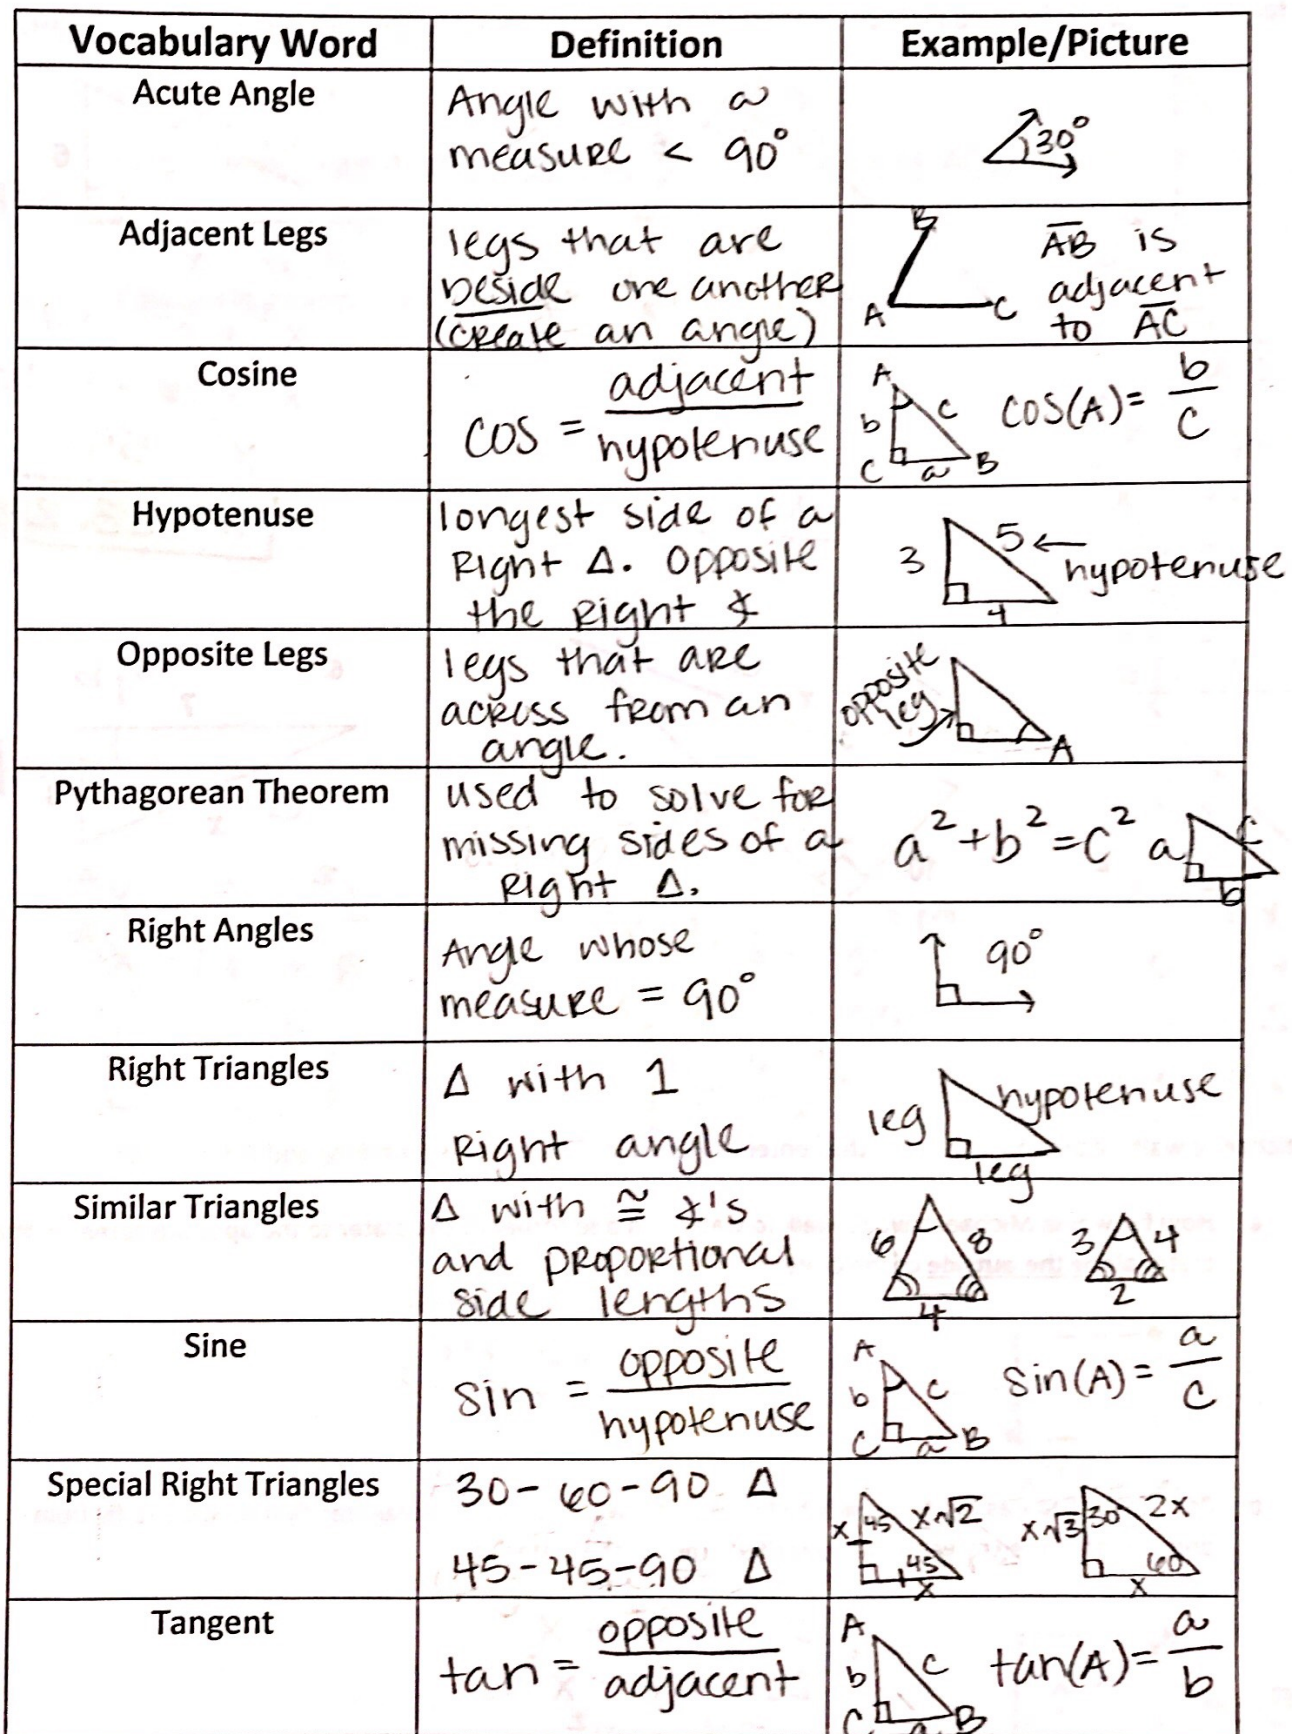 Vocabulary Word Definition Example/Picture
Acute Angle
Angle with a
measure < 90°
30°
Adjacent Legs
legs that are
beside one another
(create an angle)
B
A C
A̅B̅ is
adjacent
to A̅C̅
Cosine
cos = adjacent/hypotenuse
A
b c
C a B
cos(A) = b/c
Hypotenuse
longest side of a
Right Δ. Opposite
the Right ∡
3 5 ← hypotenuse
4
Opposite Legs
legs that are
across from an
angle.
opposite
leg
A
Pythagorean Theorem
used to solve for
missing sides of a
Right Δ.
a² + b² = c² a c
b
Right Angles
Angle whose
measure = 90°
90°
Right Triangles
Δ with 1
Right angle
leg hypotenuse
leg
Similar Triangles
Δ with ≅ ∡'s
and proportional
side lengths
6 8 3 4
4 2
Sine
sin = opposite/hypotenuse
A
b c
C a B
sin(A) = a/c
Special Right Triangles
30-60-90 Δ
45-45-90 Δ
x 45 x√2
45
x
x√3 30 2x
60
x
Tangent
tan = opposite/adjacent
A
b c
C a B
tan(A) = a/b